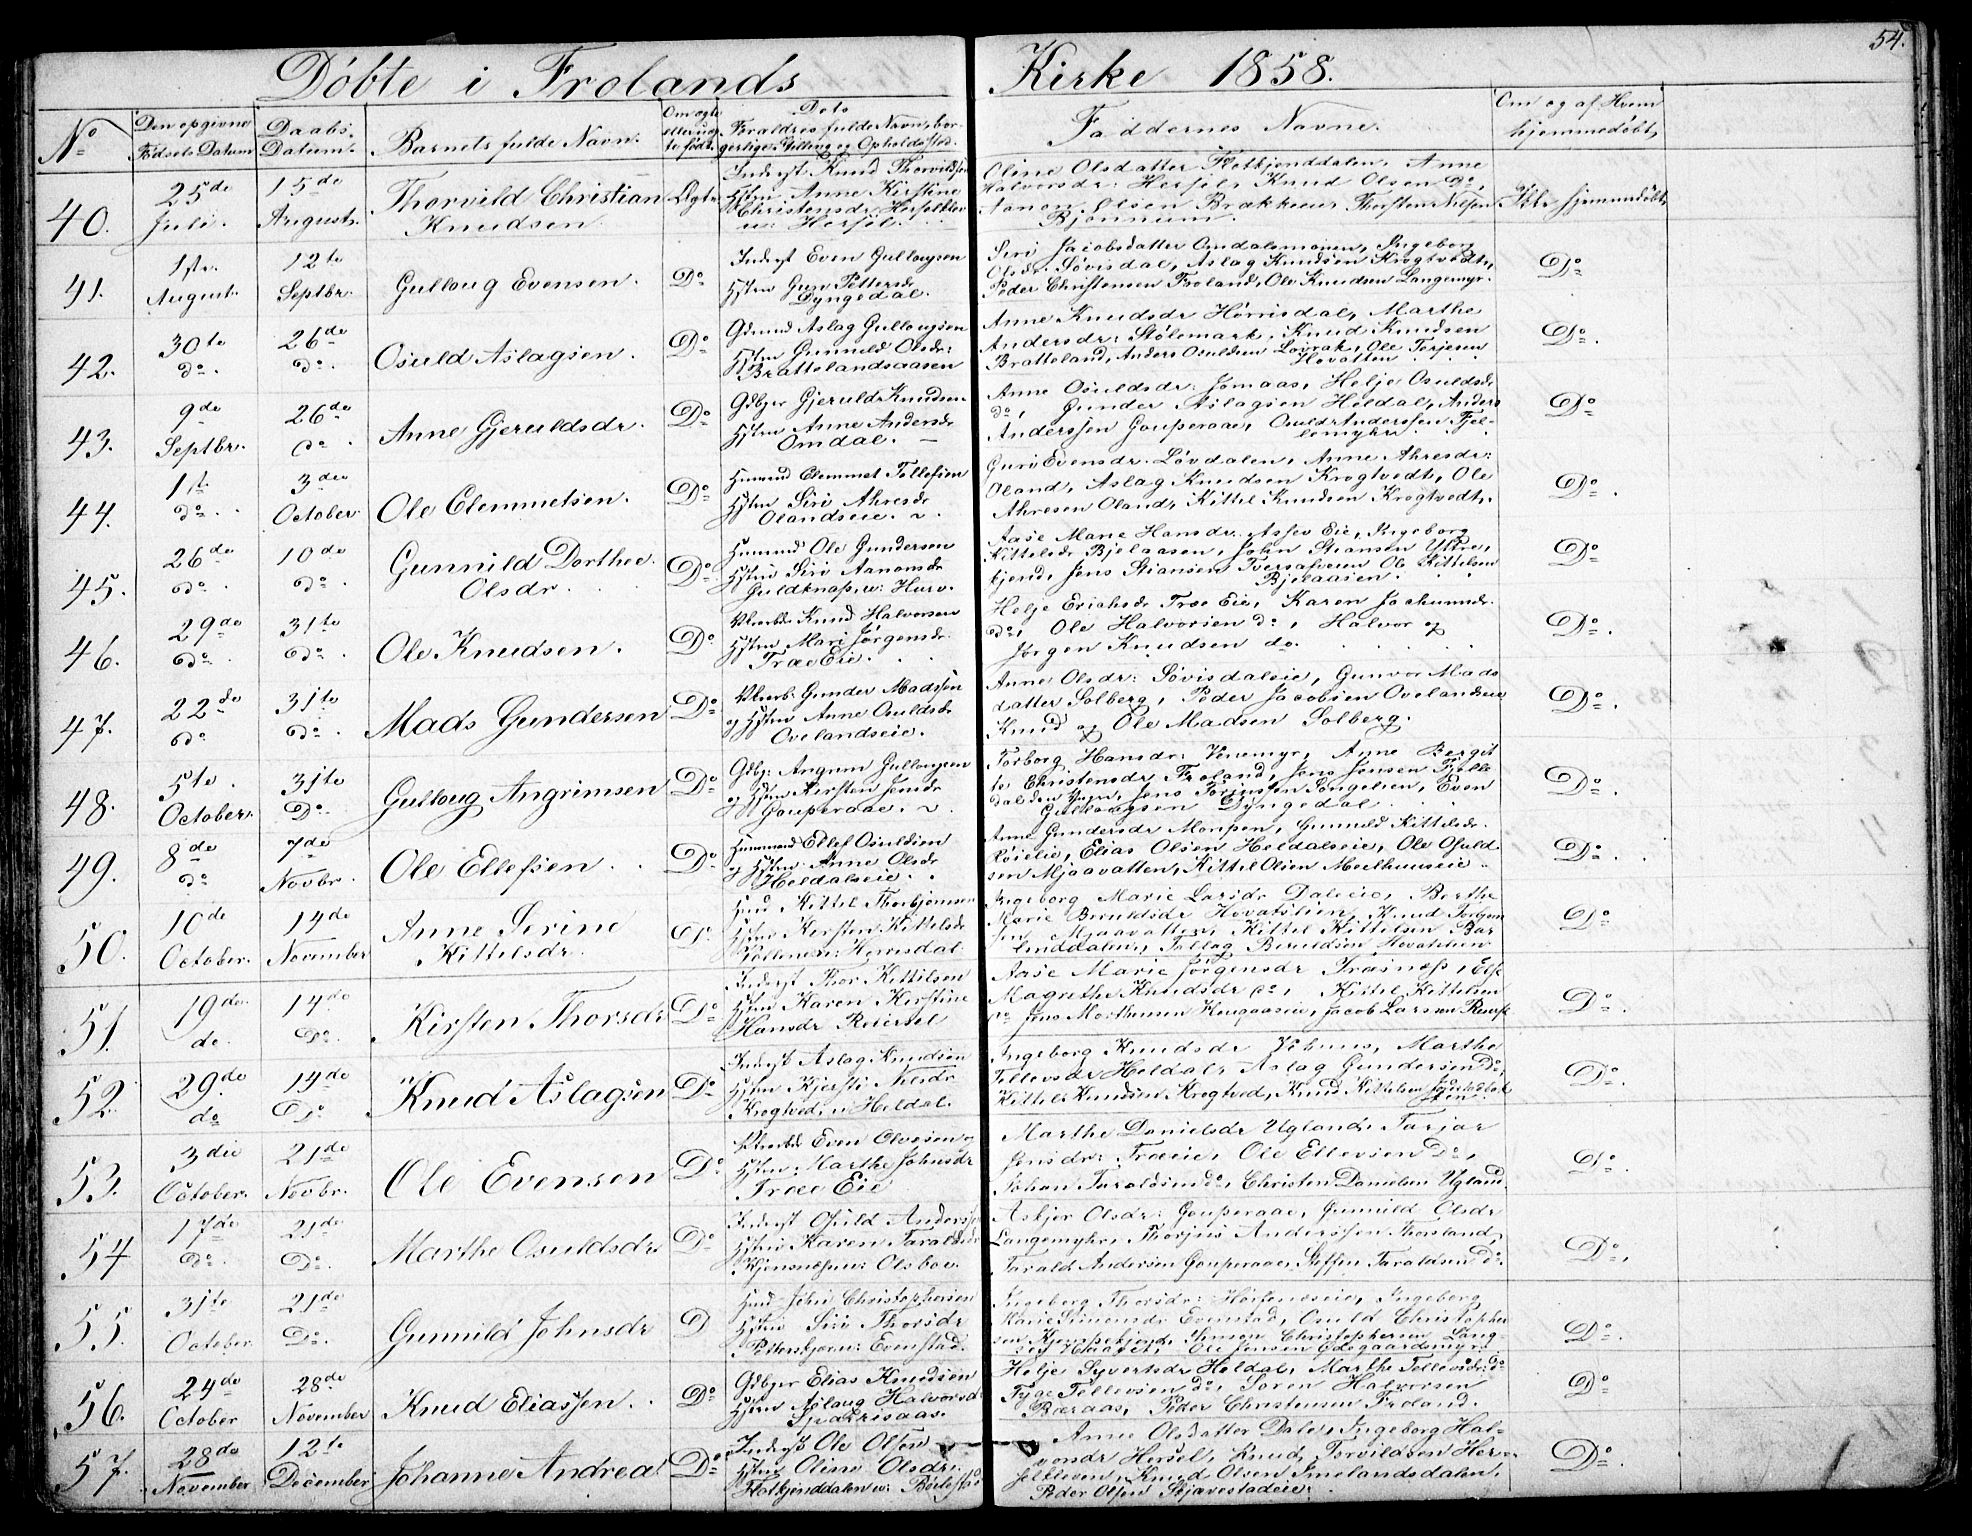 54.
Döbte i Frolands Kirke 1858.
No
Den opgivne Födsels Datum
Daabs- Datum
Barnets fulde Navn.
Om ægte eller uægte födt.
Forældres fulde Navn, borgerlige Stilling og Opholdssted.
Faddernes Navne.
Om og af Hvem hjemmedöbt,
40.
25de Juli.
15de August.
Thorvild Christian Knudsen
Ægte
Inderst Knud Thorvildsen
Hstru Anne Kirstine
Christensdr.
Oline Olsdatter Flotkjenddalen, Anne
Halvorsdr: Hersel, Knud Olsen Do,
Aanon Olsen Brækkeeie Thorsten Nilsen
Bjønnum.
41.
1ste August.
12te Septbr.
Gulloug Evensen.
Do
Inderst Even Gullougsen
Hstru Guro Pettersdr
Dyngedal.
Siri Jacobsdatter Omdalsmonen, Ingeborg
Olsdr. Søvisdal, Aslag Knudsen Krogtvedt,
Peder Christensen Froland, Ole Knudsen Langemyr.
Do
42.
30te do.
26de do.
Osuld Aslagsen.
Do
Gdmand Aslag Gullougsen
Hstru Gunnild Olsdr:
Brattelandsaasen
Anne Knudsdr Hørrisdal, Marthe
Andersdr: Stølemark, Knud Knudsen
Bratteland, Anders Osuldsen Løvrak, Ole Terjesen
Hovatten
Do.
43.
9de Septbr.
26de do.
Anne Gjeruldsdr.
Do
Gdbjer Gjeruld Knudsen
Hstru Anne Andersdr
Omdal.
Anne Osuldsdr: Jomaas, Helje Osuldsdr
do, Gunder Aslagsen Heldal, Anders
Anderssen Gouperaae, Osuld Anderssen Fjellemyhr
Do
44.
1ste do.
3die October.
Ole Clemmetsen.
Do
Husmand Clemmet Tellefsen
Hstru Siri Ahresdr
Olandseie.
Guro Evensdr. Løvdalen, Anne Ahresdr:
Oland, Aslag Knudsen Krogtvedt, Ole
Ahresen Oland, Kittel Knudsen Krogtvedt.
Do.
45.
26de do.
10de do.
Gunnild Dorthee Olsdr.
Do
Husmand Ole Gundersen
Hstru Siri Aanonsdr
Guldknap, Hurv.
Aase Marie Hansdr: Assev Eie, Ingeborg
Kittelsdr Bjelaasen, John Stiansen Yttre,
kjend, Jens Stiansen Ole Kittelsen
Bjelaasen.
Do
46.
29de do.
31te do.
Ole Knudsen.
Do
Knud Halvorsen
Hstru Mari Jørgensdr.
Træe Eie.
Helje Erichsdr Træe Eie, Karen Jochumsdr.
do, Ole Halvorsen do, Halvor og
Jørgen Knudsen do.
Do.
47.
22de do
31te do.
Mads Gundersen
Do
Gunder Madssen
og Hstru Anne Osuldsdr
Ovelandseie.
Anne Olsdr: Søvisdaleie, Gunvor Madsdatter
Solberg, Peder Jacobsen Ovelandseie
Knud og Ole Madsen Solberg.
Do.
48.
5te October.
31te Do.
Gulloug Angrimsen
Do
Gdbjr: Angrim Gullougsen
og Hstru Kirsten Jensdr
Gouperaae.
Torborg Hansdr: Venemyr, Anne Bergitte
Christensdr Froland, Jens Jensen
Even
Gullougsen Dyngedal
Do.
49.
8de do
7de Novbr.
Ole Ellefsen.
Do.
Husmand Ellef Osuldsen
og Hstru Anne Olsdr
Heldalseie.
Anne Gundersdr Monpen, Gunnild Kittelsdr.
Røieie, Elias Olsen Heldalseie, Ole Osuldsen
Mjaavatten, Kittel Olsen
Do.
50.
10de October.
14de November
Anne Serine Kittelsdr.
Do
Kittel Thorbjønnsen
Hstru Kirsten Kittelsdr
Ingeborg Marie Larsdr Daleeie, Berthe
Marie Beruldsdr Hovatslien, Knud
Mjaavatten, Kittel Kittelsen Barlinddalen,
Tellag Beruldsen Hovatslien
Do
51.
19de do.
14de Do.
Kirsten Thorsdr
Do
Inderst Thor Kittilsen
Hstru Karen Kirstine
Hansdr Reiersel
Aase Marie Jørgensdr Træsnæs, Else
Magrethe Knudsdr do, Kittel Kittelsen
do Jens Mathisen, Jacob Larssen
Do.
52.
29de do
14de Do.
Knud Aslagsen
Do
Inderst Aslag Knudsen
Hstru Kjersti Nilsdr
Krogtved, i Heldal.
Ingeborg Knudsdr, Marthe
Tellevsdr Heldal, Aslag Gundersen Do,
Kittel Knudsen Krogtved, Knud Kittelsen
Do.
53.
3die October.
21de Novbr.
Ole Evensen
Do
Even Olvesen og
Hstru Marthe Johnsdr
Træe Eie
Marthe Danielsdr Ugland, Tarjar
Jensdr: Træeie, Ole Ellevsen Do,
Johan Taraldsen do, Christen Danielsen Ugland.
Do.
54
17de Do.
21de Do.
Marthe Osuldsdr
Do
Inderst Osuld Anderssen
Hstru Karen Taraldsdr
Olsbov.
Asbjør Olsdr: Gouperaae, Gunnild Olsdr
Langemyhr, Thorjus Anderssen Thorsland,
Tarald Andersen Gouperaae, Steffen Taraldsen do.
Do.
55.
31te October.
21de Do.
Gunnild Johnsdr
D
John Christophersen
Hstru Siri Thorsdr
Evenstad.
Ingeborg Thorsdr:, Ingeborg
Karie Simensdr Evenstad, Osuld Christophersen
Kjempekjend, Simon Christophersen
Ole Jensen Ødegaardsmyr
Do.
56.
24de October
28de November
Knud Eliassen.
Do
Gdbjer Elias Knudsen
Hstru Aslaug Halvorsdr
Helje Syvertsdr Heldal, Marthe Tellevsdr: do
Tyge Tellevsen do, Søren Halvorsen
Bæraas, Peder Christensen Froland.
Do
57.
28de November
12te December
Johanne Andrea
Do
Inderst Ole Olsen
Hstru Oline Olsdr.
Flotkjenddalen
Anne Olsdatter Dale, Ingeborg Halvorsdr
Hersel, Knud Torvildsen Herselkleven,
Knud Olsen Imelandsdalen,
Peder Olsen Skjævestadeie.
Do.